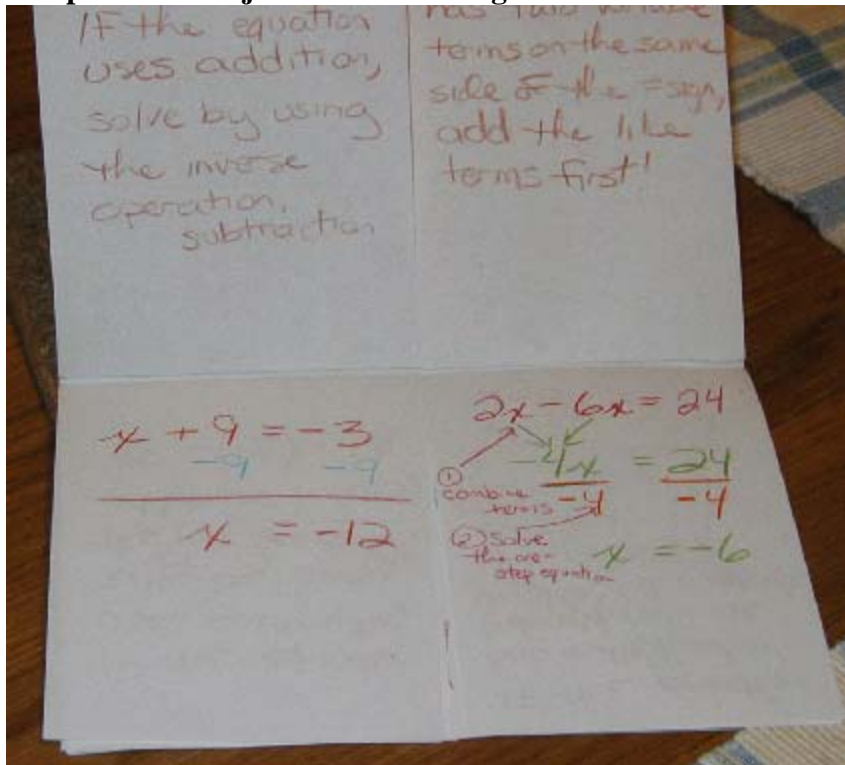 If the equation
uses addition,
solve by using
the inverse
operation,
subtraction
terms on the same
side of the = sign,
add the like
terms first!
x + 9 = -3
-9 -9
x = -12
2x - 6x = 24
-4x = 24
-4 -4
① combine
terms
② solve
the one-
step equation
x = -6